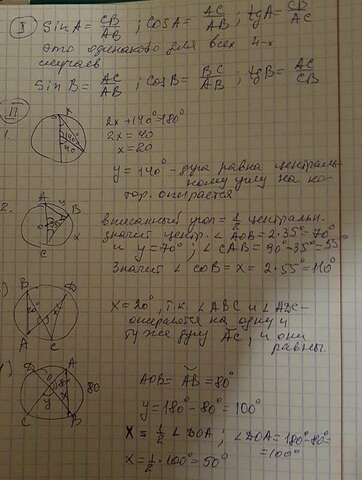 I sin A = CB/AB ; cos A = AC/AB ; tg A = CB/AC
это одинаково для всех 4-х
случаев
sin B = AC/AB ; cos B = BC/AB ; tg B = AC/CB
II
1.
2x + 140° = 180°
2x = 40
x = 20
y = 140° - дуга равна централь-
ному углу на ко-
тор. опирается
2.
вписанный угол = 1/2 центральн.
значит центр. ∠AOB = 2·35° = 70°
и y = 70° ; ∠CAB = 90° - 35° = 55°
Значит ∠COB = x = 2·55° = 110°
x = 20°, т.к. ∠ABC и ∠ADC -
опираются на одну и
ту же дугу AC, и они
равны.
80
AOB = AB = 80°
y = 180° - 80° = 100°
x = 1/2 ∠DOA ; ∠DOA = 180° - 80° =
= 100°
x = 1/2 · 100° = 50°